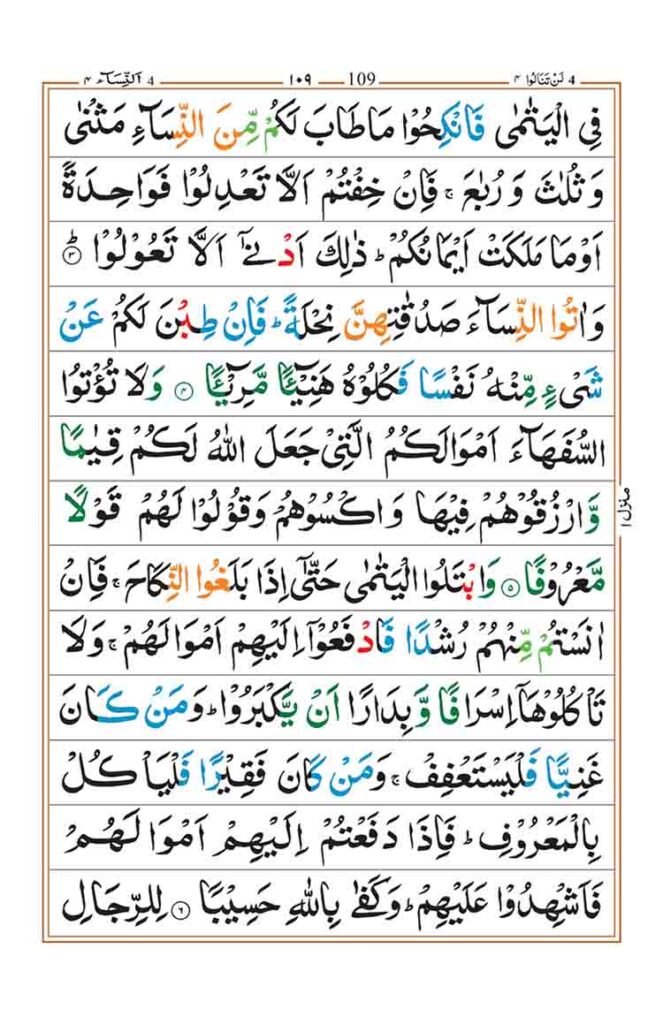 لَنْ تَنَالُوا ٤ 4 109 ١٠٩ اَلنِّسَآء ٤ 4
فِى الْيَتٰمٰى فَانْكِحُوْا مَا طَابَ لَكُمْ مِّنَ النِّسَآءِ مَثْنٰى
وَ ثُلٰثَ وَ رُبٰعَ ۚ فَاِنْ خِفْتُمْ اَلَّا تَعْدِلُوْا فَوَاحِدَةً
اَوْ مَا مَلَكَتْ اَيْمَانُكُمْ ؕ ذٰلِكَ اَدْنٰۤى اَلَّا تَعُوْلُوْا ؕ‏ ﴿۳﴾
وَ اٰتُوا النِّسَآءَ صَدُقٰتِهِنَّ نِحْلَةً ؕ فَاِنْ طِبْنَ لَكُمْ عَنْ
شَىْءٍ مِّنْهُ نَفْسًا فَكُلُوْهُ هَنِيْٓـئًـا مَّرِیْٓـئًـا ﴿۴﴾ وَلَا تُؤْتُوا
السُّفَهَآءَ اَمْوَالَكُمُ الَّتِىْ جَعَلَ اللّٰهُ لَكُمْ قِيٰمًا
وَّارْزُقُوْهُمْ فِيْهَا وَ اكْسُوْهُمْ وَقُوْلُوْا لَهُمْ قَوْلًا
مَّعْرُوْفًا ﴿۵﴾ وَابْتَلُوا الْيَتٰمٰى حَتّٰٓى اِذَا بَلَغُوا النِّكَاحَ ۚ فَاِنْ
اٰنَسْتُمْ مِّنْهُمْ رُشْدًا فَادْفَعُوْٓا اِلَيْهِمْ اَمْوَالَهُمْ ۚ وَلَا
تَاْكُلُوْهَاۤ اِسْرَافًا وَّ بِدَارًا اَنْ يَّكْبَرُوْا ؕ وَمَنْ كَانَ
غَنِيًّا فَلْيَسْتَعْفِفْ ۚ وَمَنْ كَانَ فَقِيْرًا فَلْيَاْكُلْ
بِالْمَعْرُوْفِ ؕ فَاِذَا دَفَعْتُمْ اِلَيْهِمْ اَمْوَالَهُمْ
فَاَشْهِدُوْا عَلَيْهِمْ ؕ وَكَفٰى بِاللّٰهِ حَسِيْبًا ﴿۶﴾ لِلرِّجَالِ
منزل ۱